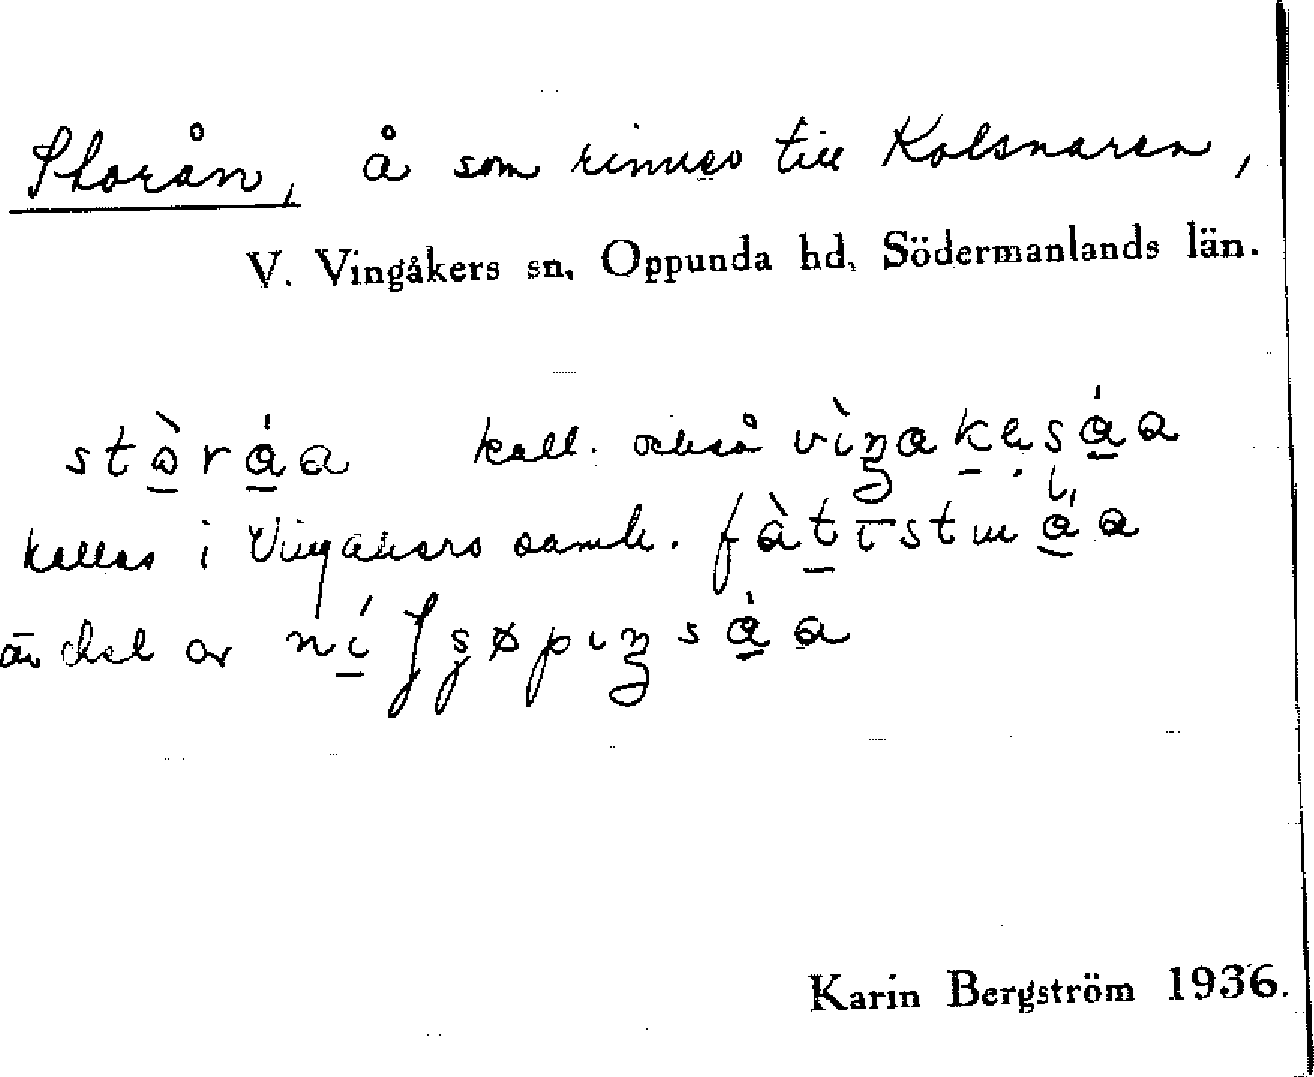 Storån, å som rinner till Kolsnaren,
V. Vingåkers sn, Oppunda hd, Södermanlands län.
stòráa kall. också vìŋakesáa
kallas i Vingåkers samh. fàtıstuáa
är del av níʃʂøpıŋsáa
Karin Bergström 1936.